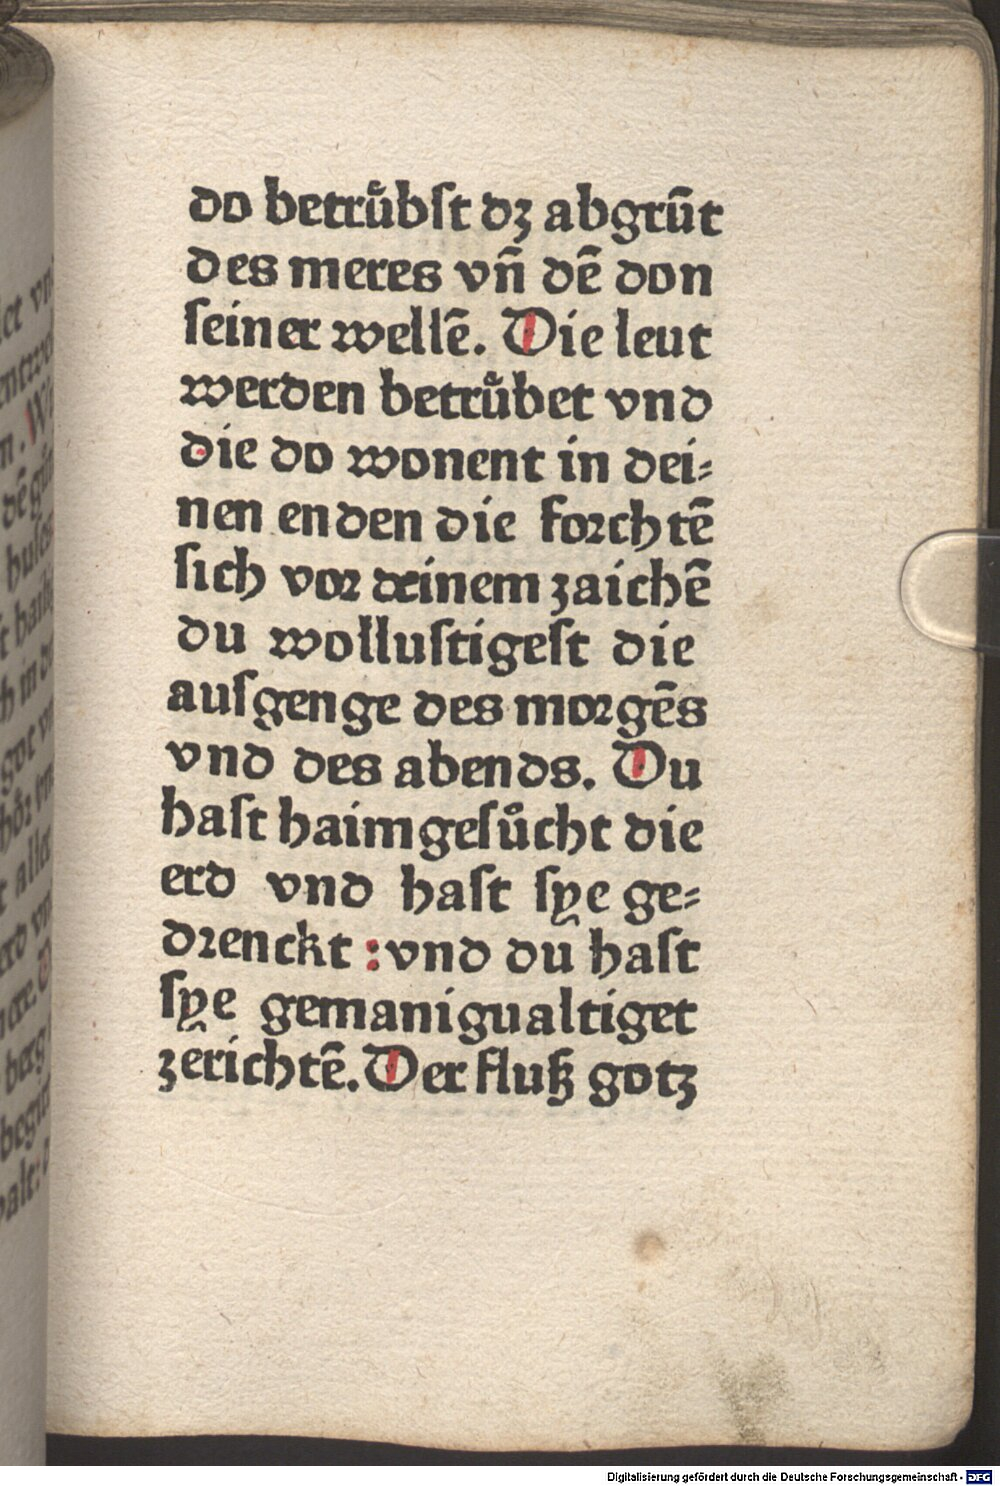 do betruͤbst dz abgrūt
des meres vn̄ dē don
seiner wellē. Die leut
werden betruͤbet vnd
die do wonent in dei⸗
nen enden die forchtē
sich vor deinem zaichē
du wollustigest die
ausgenge des morgēs
vnd des abends. Du
hast haimgesuͦcht die
erd vnd hast sye ge⸗
drenckt : vnd du hast
sye gemanigualtiget
zerichtē. Der fluß gotz
Digitalisierung gefördert durch die Deutsche Forschungsgemeinschaft - DFG